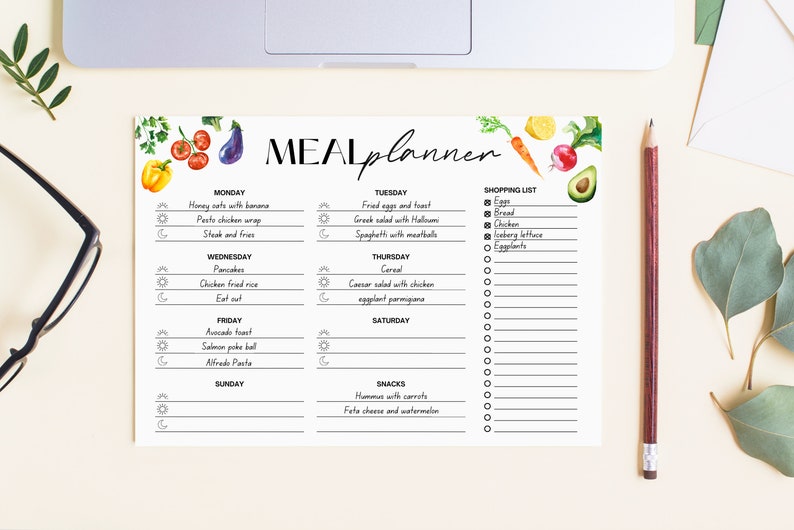 MEAL planner
MONDAY
Honey oats with banana
Pesto chicken wrap
Steak and fries
TUESDAY
Fried eggs and toast
Greek salad with Halloumi
Spaghetti with meatballs
WEDNESDAY
Pancakes
Chicken fried rice
Eat out
THURSDAY
Cereal
Caesar salad with chicken
eggplant parmigiana
FRIDAY
Avocado toast
Salmon poke ball
Alfredo Pasta
SATURDAY
SUNDAY
SNACKS
Hummus with carrots
Feta cheese and watermelon
SHOPPING LIST
Eggs
Bread
Chicken
Iceberg lettuce
Eggplants